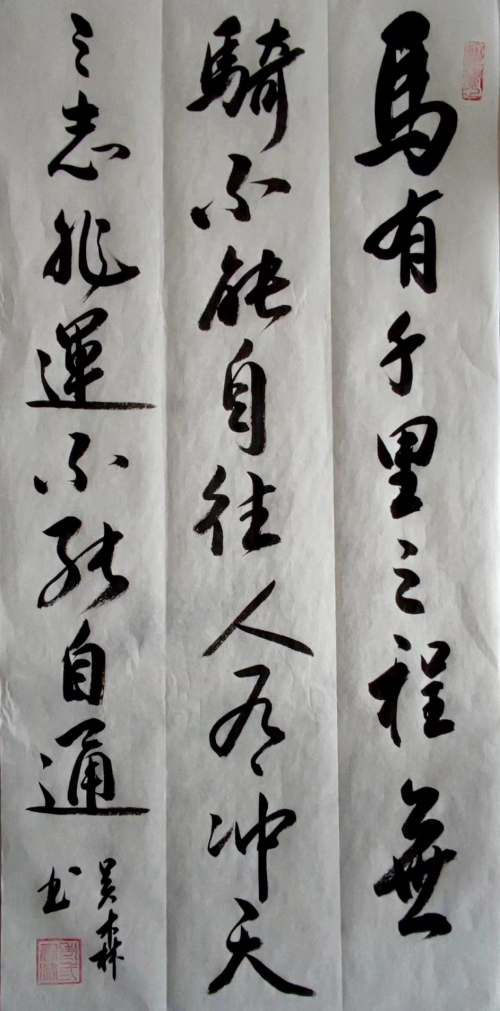 馬有千里之程無
騎不能自往人有冲天
之志非運不能自通
吴森
书